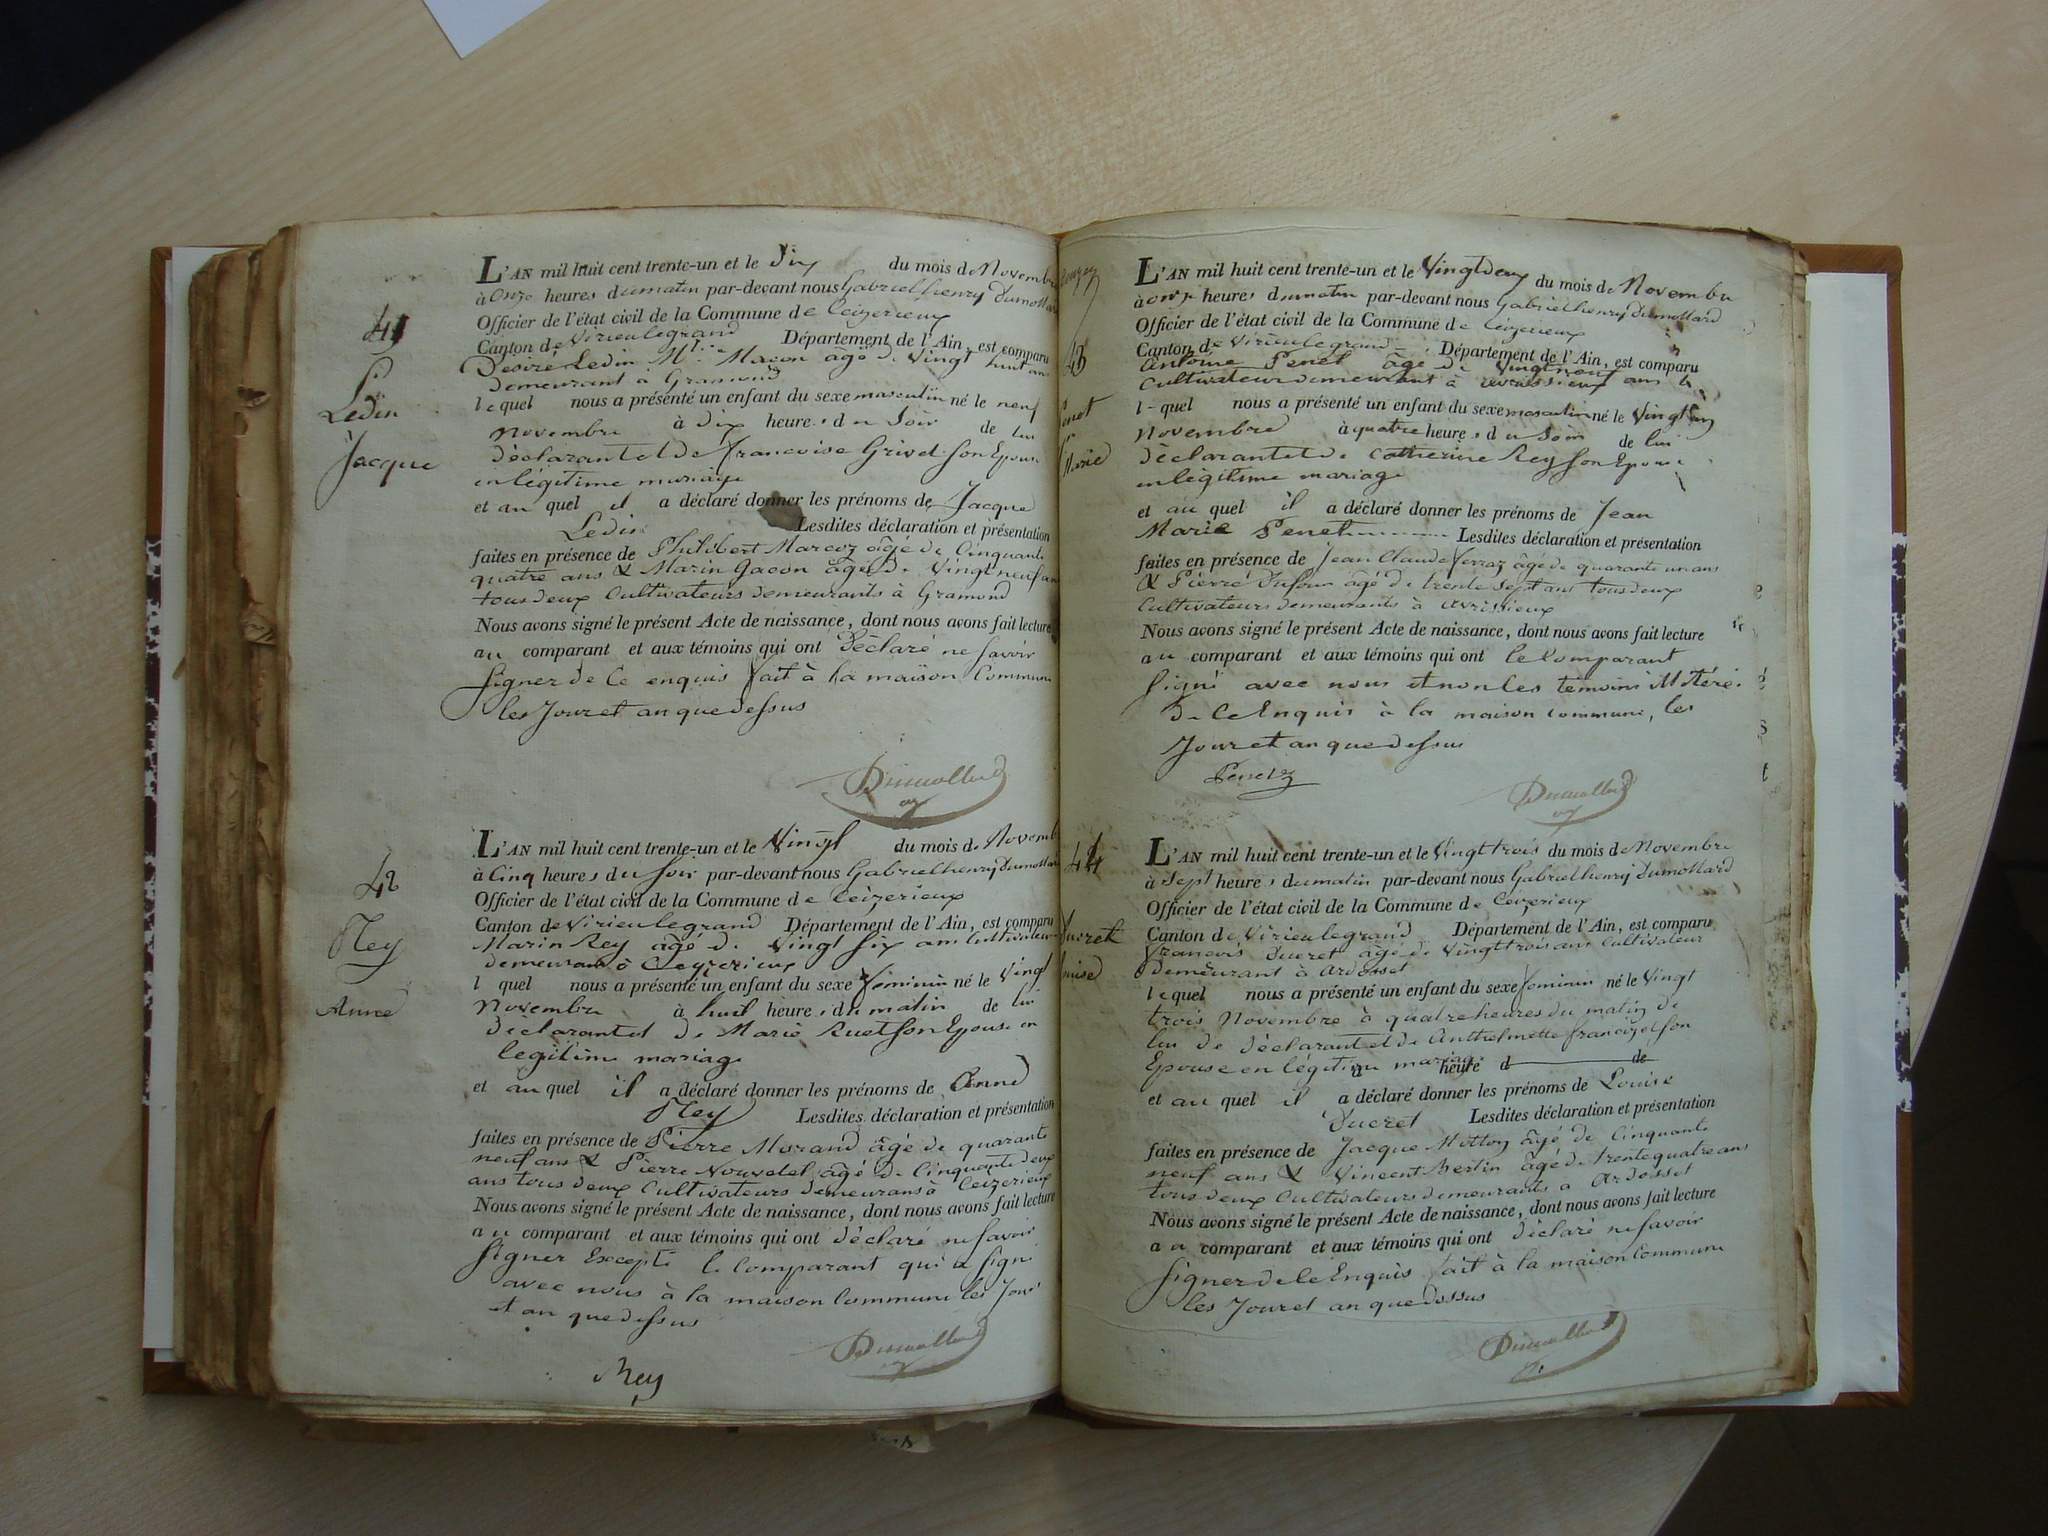 41
Ledin
Jacque
L'AN mil huit cent trente-un et le Dix du mois de Novembre
à Onze heures du matin par-devant nous Gabriel henry Dumollard
Officier de l'état civil de la Commune de Ceizerieux
Canton de Virieu le grand Département de l'Ain, est comparu
Desiré Ledin M. Macon âgé de Vingt huit ans
demeurant à Gramond
lequel nous a présenté un enfant du sexe masculin né le neuf
novembre à Dix heures du Soir de lui
déclarant et de francoise Grivel Son Epouse
en légitime mariage
et auquel il a déclaré donner les prénoms de Jacque
Ledin Lesdites déclaration et présentation
faites en présence de Philibert Marcoz âgé de Cinquante
quatre ans & Marin Gacon âgé de Vingt neuf ans
tous deux Cultivateurs demeurants à Gramond
Nous avons signé le présent Acte de naissance, dont nous avons fait lecture
au comparant et aux témoins qui ont Déclaré ne savoir
Signer de Ce enquis fait à la maison Commune
les Jour et an que dessus
Dumollard
42
Rey
Anne
L'AN mil huit cent trente-un et le Vingt du mois de Novemb
à Cinq heures du Soir par-devant nous Gabriel henry Dumollard
Officier de l'état civil de la Commune de Ceizerieux
Canton de Virieu le grand Département de l'Ain, est comparu
Marin Rey âgé de Vingt Six ans Cultivateur
demeurant à Ceyzerieux
lequel nous a présenté un enfant du sexe féminin né le Vingt
Novembre à huit heures du matin de lui
déclarant et de Marie Ruet Son Epouse en
legitime mariage
et auquel il a déclaré donner les prénoms de Anne
Rey Lesdites déclaration et présentation
faites en présence de Pierre Morand âgé de quarante
neuf ans & Pierre Nouvelet âgé de Cinquante deux
ans tous deux Cultivateurs demeurans à Ceizerieux
Nous avons signé le présent Acte de naissance, dont nous avons fait lecture
au comparant et aux témoins qui ont déclaré ne savoir
Signer Excepté le Comparant qui a Signé
avec nous à la maison Commune les Jour
et an que dessus
Dumollard
Rey
43
Marie
L'AN mil huit cent trente-un et le Vingt deux du mois de Novembre
à onze heures du matin par-devant nous Gabriel henry Dumollard
Officier de l'état civil de la Commune de Ceizerieux
Canton de Virieu le grand Département de l'Ain, est comparu
Antoine Penet âgé de Vingt neuf ans
Cultivateur demeurant à avrissieux
lequel nous a présenté un enfant du sexe masculin né le Vingt un
Novembre à quatre heures du Soir de lui
déclarant et de Catherine Rey Son Epouse
en légitime mariage
et auquel il a déclaré donner les prénoms de Jean
Marie Penet Lesdites déclaration et présentation
faites en présence de Jean Claude Verraz âgé de quarante un ans
& Pierre Dufour âgé de trente Sept ans tous deux
Cultivateurs demeurants à avrissieux
Nous avons signé le présent Acte de naissance, dont nous avons fait lecture
au comparant et aux témoins qui ont le Comparant
Signé avec nous et non les témoins illitéré
de Ce Enquis à la maison commune, les
Jour et an que dessus
Penet
Dumollard
44
Ducret
L'AN mil huit cent trente-un et le Vingt trois du mois de Novembre
à Sept heures du matin par-devant nous Gabriel henry Dumollard
Officier de l'état civil de la Commune de Ceyzerieux
Canton de Virieu le grand Département de l'Ain, est comparu
francois Ducret âgé de Vingt trois ans Cultivateur
Demeurant à ardosset
lequel nous a présenté un enfant du sexe féminin né le Vingt
trois Novembre à quatre heures du matin de
lui de déclarant et de Anthelmette francizet son
Epouse en légitime mariage heure d de
et auquel il a déclaré donner les prénoms de Louise
Ducret Lesdites déclaration et présentation
faites en présence de Jacque Mottoz âgé de Cinquante
neuf ans & Vincent Bertin âgé de trente quatre ans
tous deux Cultivateurs demeurants a ardosset
Nous avons signé le présent Acte de naissance, dont nous avons fait lecture
au comparant et aux témoins qui ont déclaré ne savoir
Signer de Ce Enquis fait à la maison Commune
les Jour et an que dessus
Dumollard